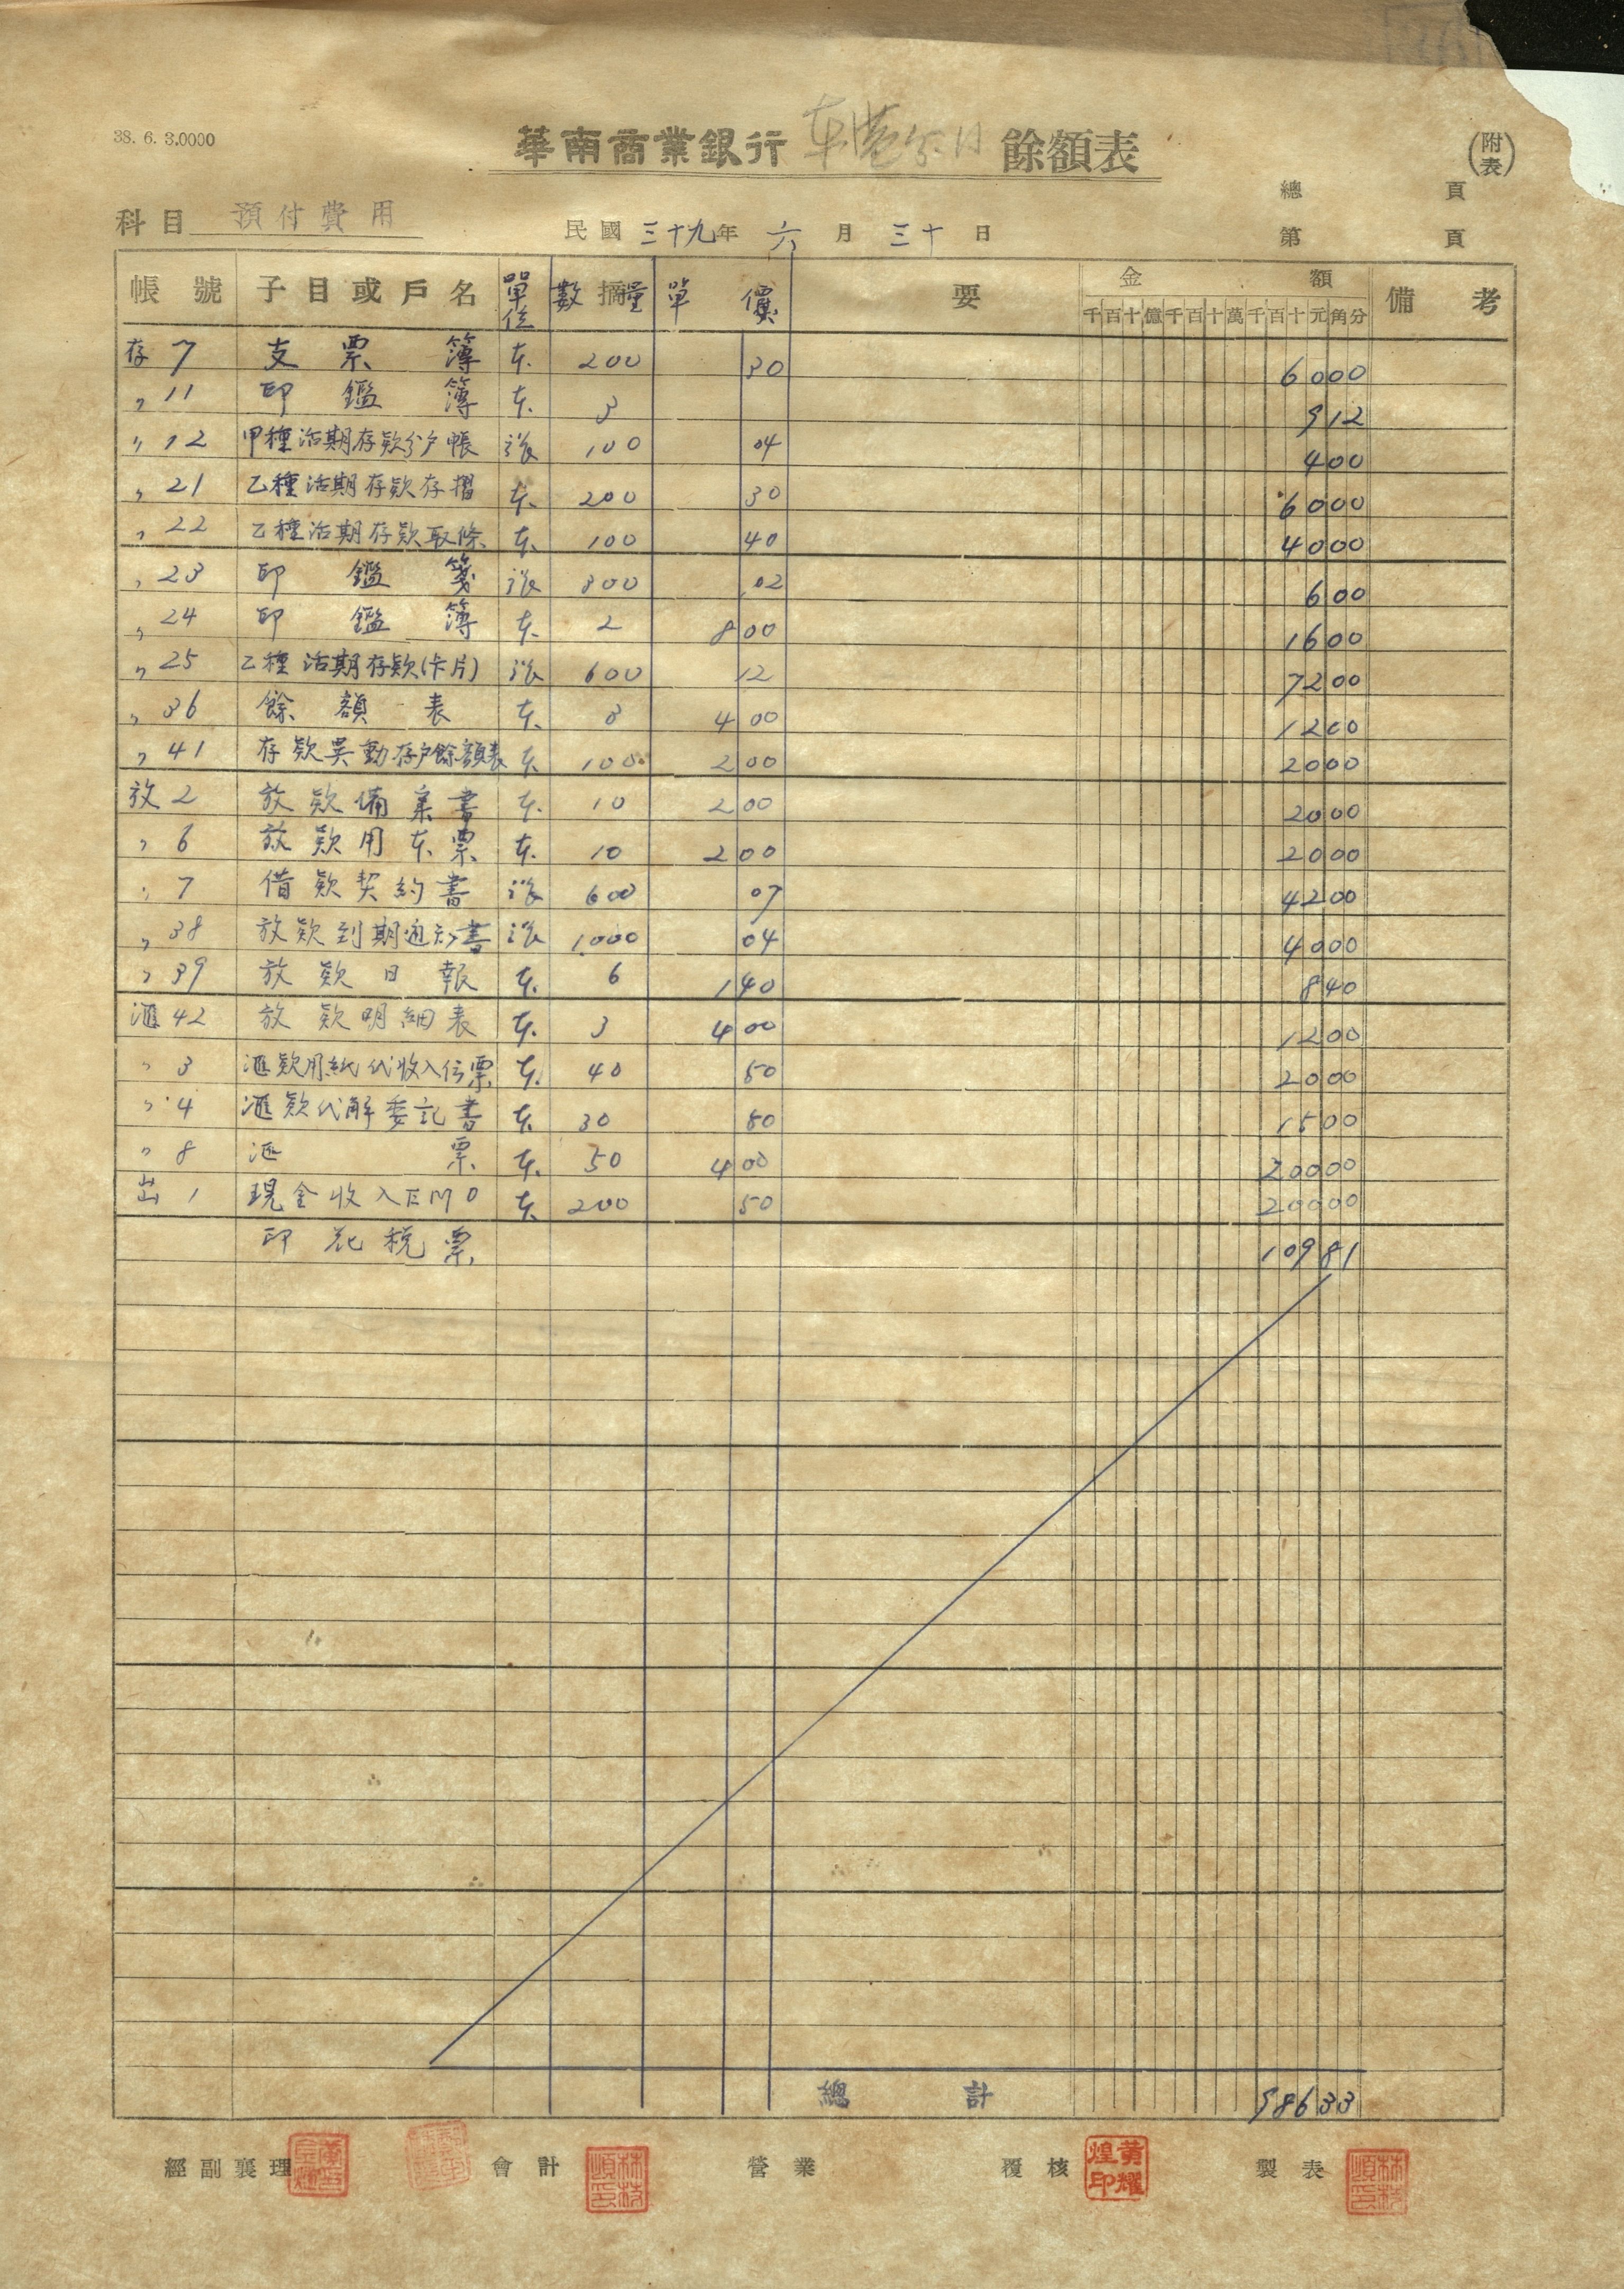 38. 6. 3.0000
華南商業銀行 東港分行 餘額表 (附表)
總 頁
科目 預付費用 民國三十九年 六 月 三十 日 第 頁
帳號 子目或戶名 單位 數量 摘 單價 要 金額 備考
千百十億千百十萬千百十元角分
存 7 支票簿 本 200 30 6000
〃 11 印鑑簿 本 3 912
〃 12 甲種活期存款分户帳 張 100 04 400
〃 21 乙種活期存款存摺 本 200 30 6000
〃 22 乙種活期存款取條 本 100 40 4000
〃 23 印鑑箋 張 300 02 600
〃 24 印鑑簿 本 2 800 1600
〃 25 乙種活期存款(卡片) 張 600 12 7200
〃 36 餘額表 本 3 400 1200
〃 41 存款異動存户餘額表 本 100 200 2000
放 2 放款備案書 本 10 200 2000
〃 6 放款用本票 本 10 200 2000
〃 7 借款契約書 張 600 07 4200
〃 38 放款到期通知書 張 1.000 04 4000
〃 39 放款日報 本 6 140 840
滙 42 放款明細表 本 3 400 1200
〃 3 滙款用紙代收入伝票 本 40 50 2000
〃 4 滙款代解委記書 本 30 50 1500
〃 8 滙票 本 50 400 20000
出 1 現金收入 本 200 50 20000
印花稅票 10981
總計 98633
經副襄理 會計 營業 覆核 製表
林枝順印 黃耀煌印 林枝順印